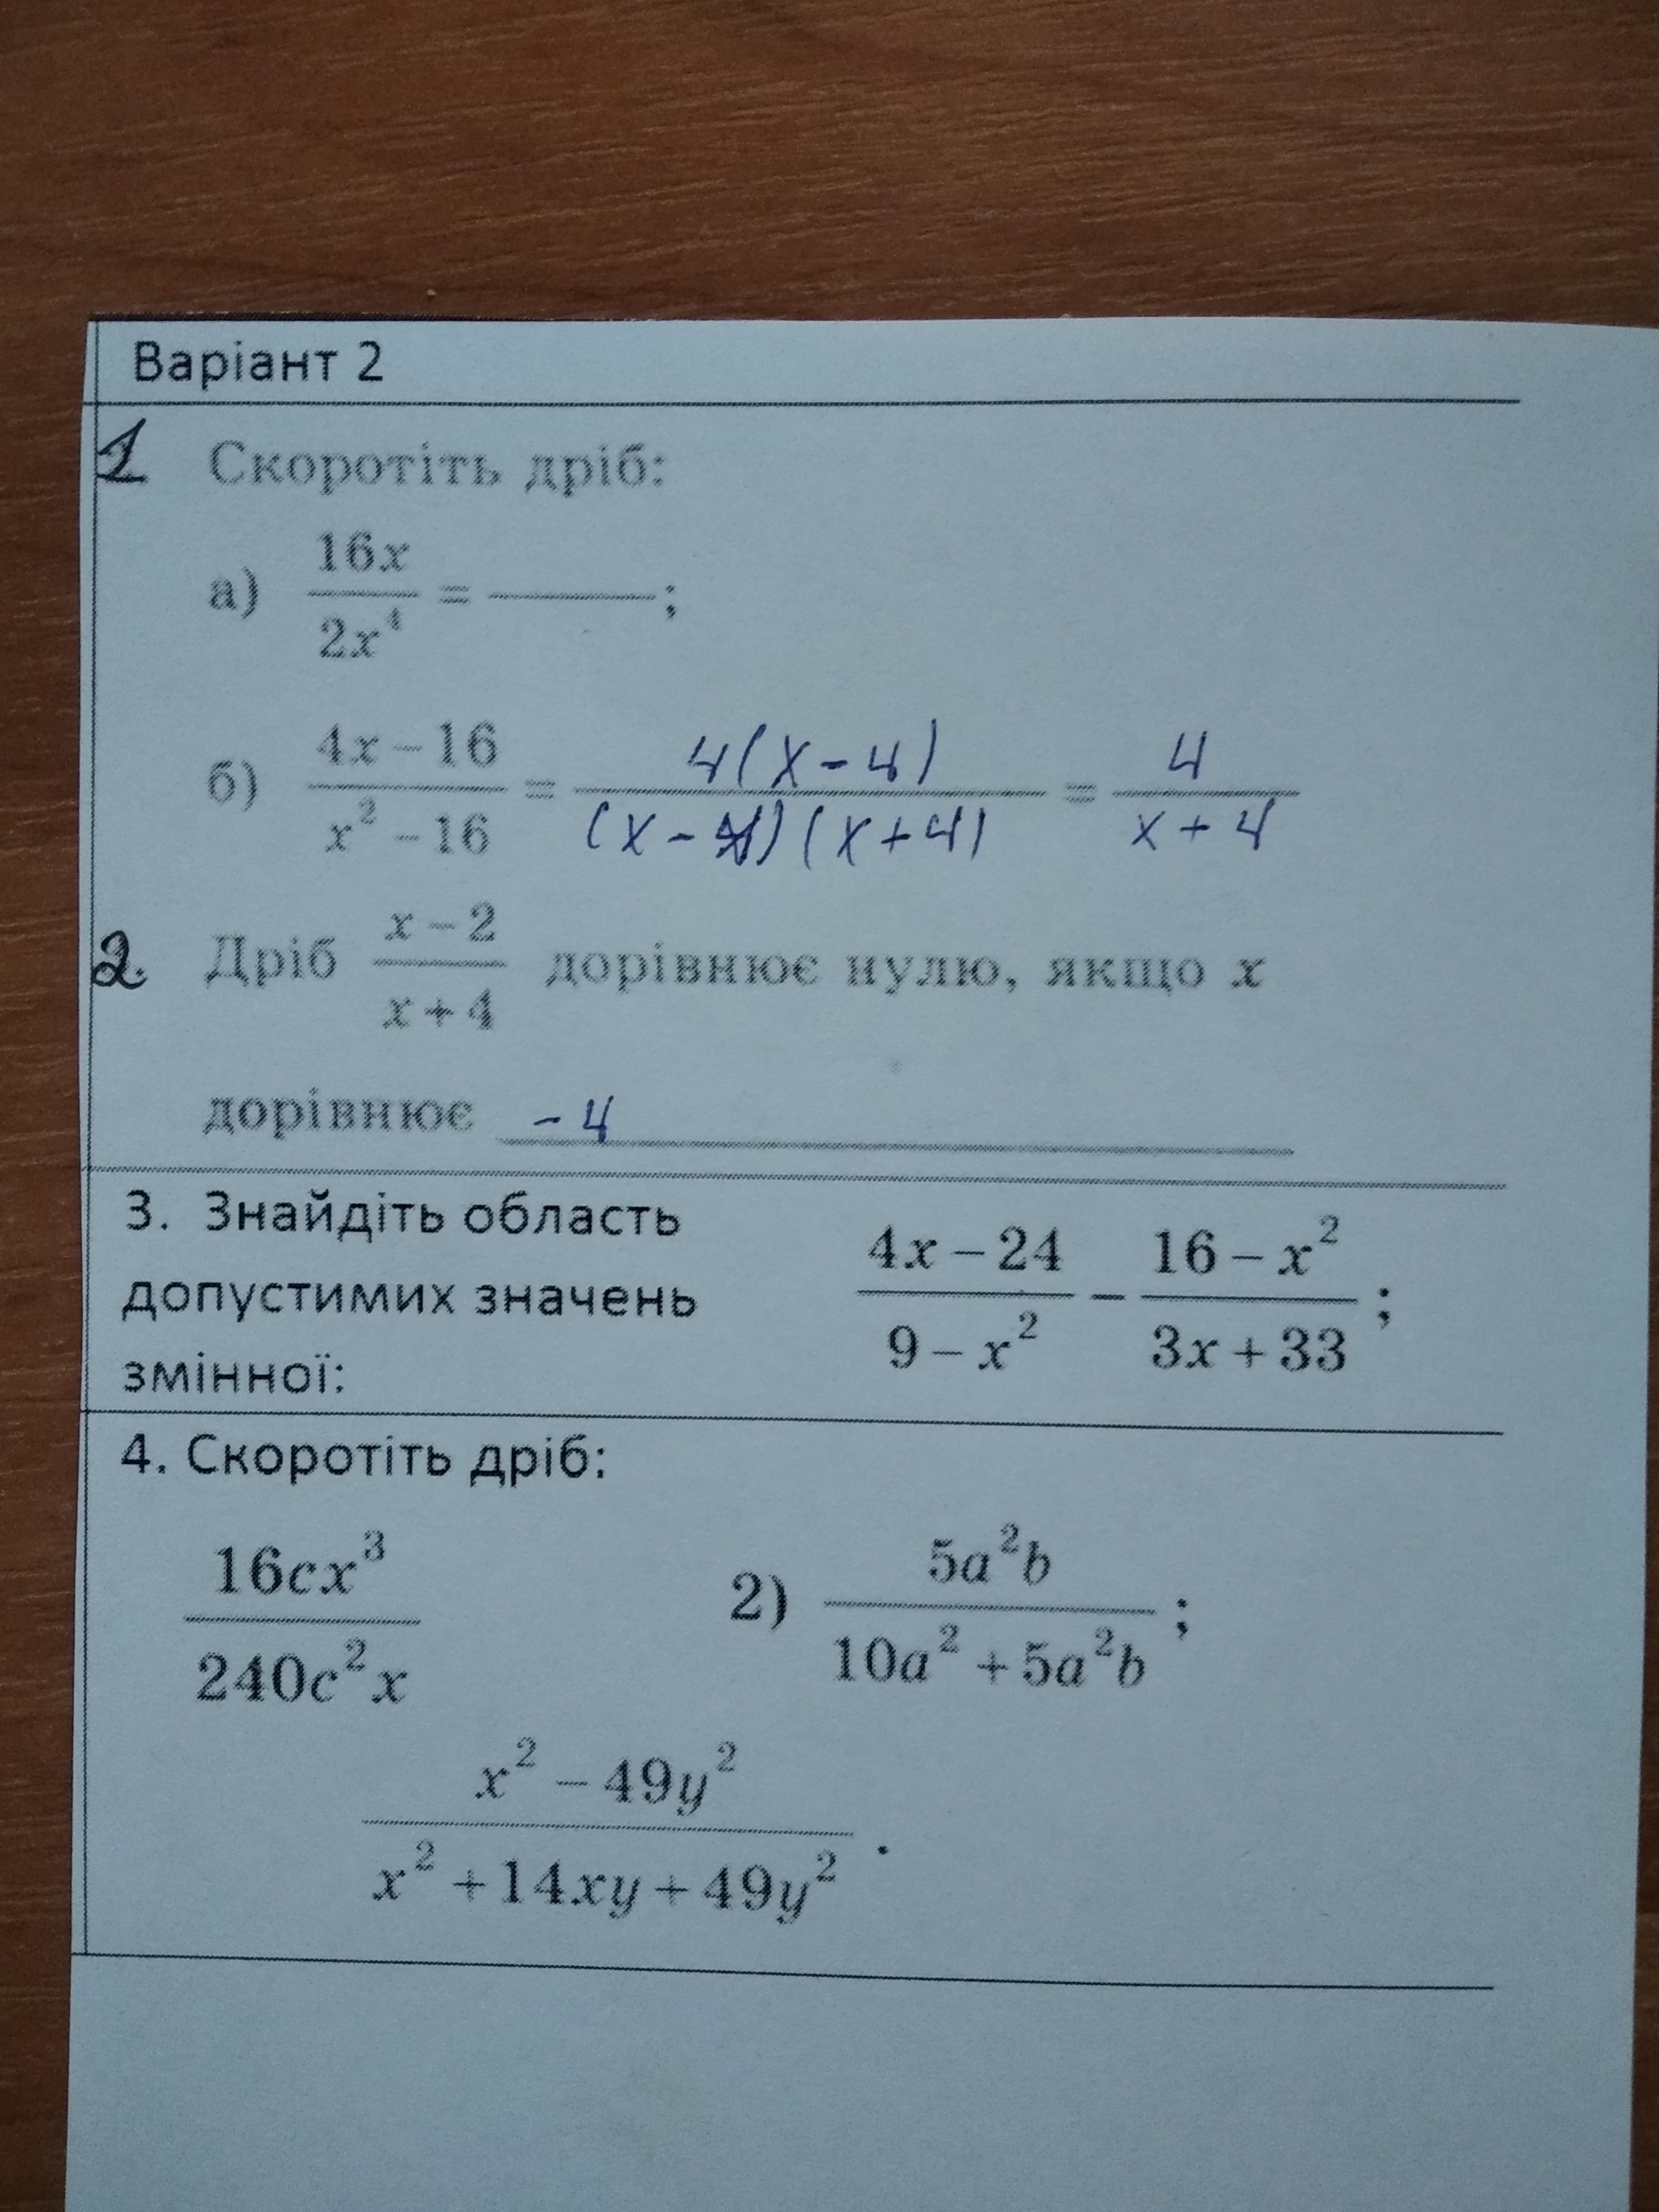 Варіант 2
1 Скоротіть дріб:
а) 16x / 2x⁴ = ———;
б) 4x – 16 / x² – 16 = 4(x – 4) / (x – 4)(x + 4) = 4 / x + 4
2. Дріб x – 2 / x + 4 дорівнює нулю, якщо x
дорівнює – 4
3. Знайдіть область
допустимих значень
змінної:
4x – 24 / 9 – x² – 16 – x² / 3x + 33 ;
4. Скоротіть дріб:
16cx³ / 240c²x
2) 5a²b / 10a² + 5a²b ;
x² – 49y² / x² + 14xy + 49y² .